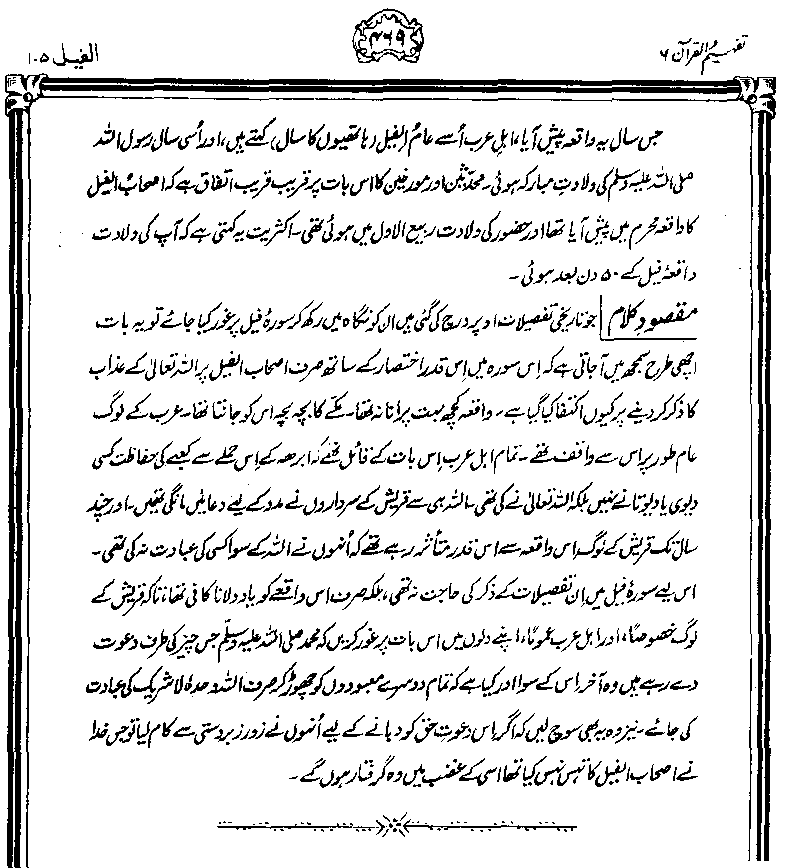 تفہیم القرآن ۶
۴۶۹
الفیل ۱۰۵
جس سال یہ واقعہ پیش آیا، اہلِ عرب اُسے عامُ الفیل (ہاتھیوں کا سال) کہتے ہیں، اور اُسی سال رسول اللہ
صلی اللہ علیہ وسلم کی ولادتِ مبارکہ ہوئی۔ محدّثین اور مورخین کا اس بات پر قریب قریب اتفاق ہے کہ اصحابُ الفیل
کا واقعہ محرم میں پیش آیا تھا اور حضور کی ولادت ربیع الاول میں ہوئی تھی۔ اکثریت یہ کہتی ہے کہ آپ کی ولادت
واقعۂ فیل کے ۵۰ دن بعد ہوئی۔
مقصودِ کلام جو تاریخی تفصیلات اوپر درج کی گئی ہیں ان کو نگاہ میں رکھ کر سورۂ فیل پر غور کیا جائے تو یہ بات
اچھی طرح سمجھ میں آ جاتی ہے کہ اِس سورہ میں اِس قدر اختصار کے ساتھ صرف اصحاب الفیل پر اللہ تعالیٰ کے عذاب
کا ذکر کر دینے پر کیوں اکتفا کیا گیا ہے۔ واقعہ کچھ بہت پرانا نہ تھا۔ مکّے کا بچہ بچہ اس کو جانتا تھا۔ عرب کے لوگ
عام طور پر اس سے واقف تھے۔ تمام اہل عرب اِس بات کے قائل تھے کہ ابرھہ کے اِس حملے سے کعبے کی حفاظت کسی
دیوی یا دیوتا نے نہیں بلکہ اللہ تعالیٰ نے کی تھی۔ اللہ ہی سے قریش کے سرداروں نے مدد کے لیے دعائیں مانگی تھیں۔ اور چند
سال تک قریش کے لوگ اس واقعہ سے اس قدر متأثر رہے تھے کہ اُنہوں نے اللہ کے سوا کسی کی عبادت نہ کی تھی۔
اس لیے سورۂ فیل میں اِن تفصیلات کے ذکر کی حاجت نہ تھی، بلکہ صرف اس واقعے کو یاد دلانا کافی تھا، تاکہ قریش کے
لوگ خصوصاً، اور اہل عرب عموماً، اپنے دلوں میں اس بات پر غور کریں کہ محمد صلی اللہ علیہ وسلّم جس چیز کی طرف دعوت
دے رہے ہیں وہ آخر اس کے سوا اور کیا ہے کہ تمام دوسرے معبودوں کو چھوڑ کر صرف اللہ وحدہٗ لا شریک کی عبادت
کی جائے۔ نیز وہ یہ بھی سوچ لیں کہ اگر اِس دعوتِ حق کو دبانے کے لیے اُنہوں نے زور زبردستی سے کام لیا تو جس خدا
نے اصحاب الفیل کا تہس نہس کیا تھا اسی کے غضب میں وہ گرفتار ہوں گے۔